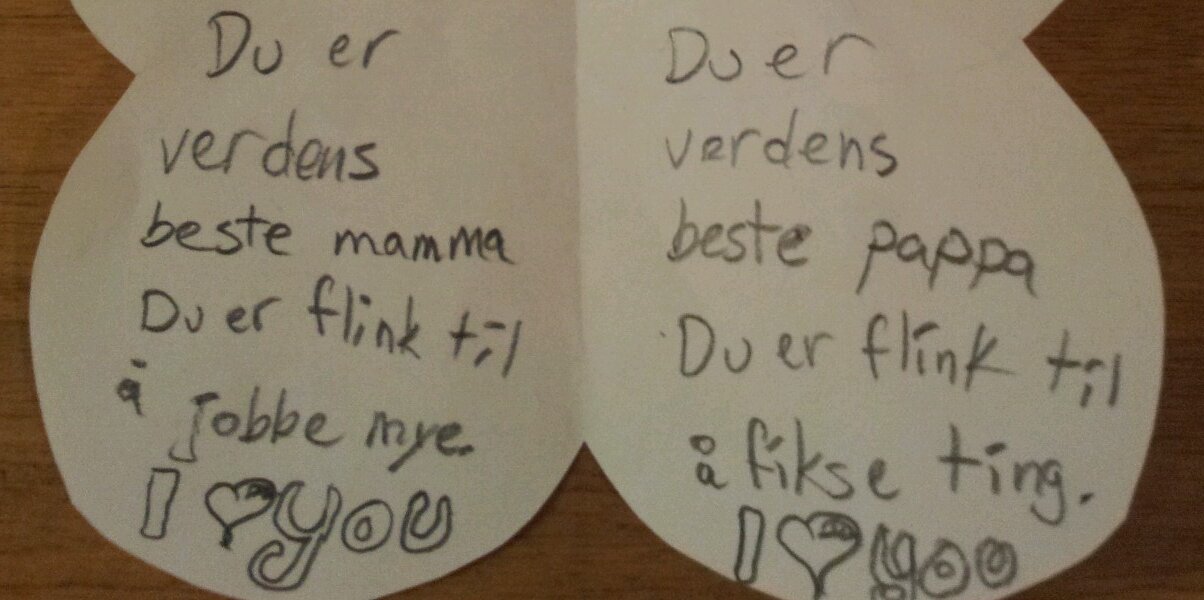 Du er
verdens
beste mamma
Du er flink til
å jobbe mye.
I ♥ you
Du er
verdens
beste pappa
Du er flink til
å fikse ting.
I ♥ you